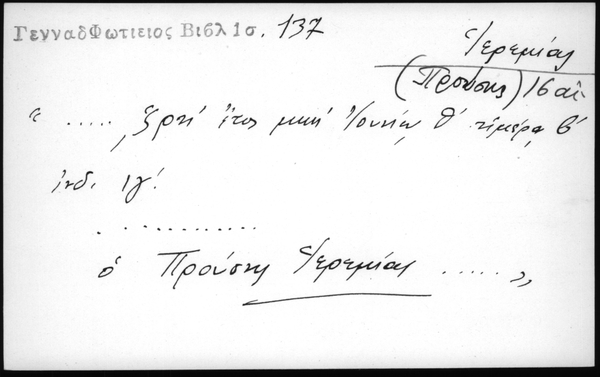 ΓενναδΦωτιειος Βιβλ 1σ. 137
Ἱερεμίας
(Προύσης) 16 αἰ.
" ..... ͵ζρπή ἔτος μηνί Ἰουνίῳ θ' ἡμέρᾳ β'
ἰνδ. ιγ'.
............
ὁ Προύσης Ἱερεμίας ..... "